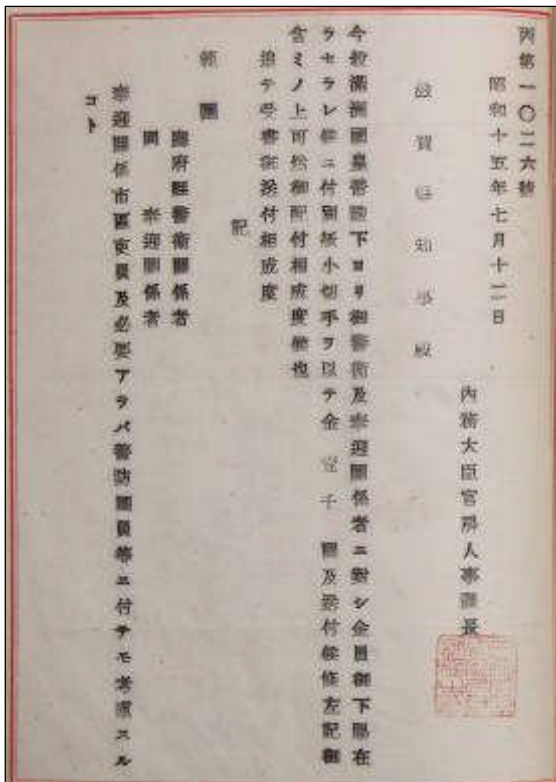 丙第一〇二六號
昭和十五年七月十二日
內務大臣官房人事課長
滋賀縣知事殿
今般滿洲國皇帝陛下ヨリ御警衛及奉迎關係者ニ對シ金員御下賜在
ラセラレ候ニ付別紙小切手ヲ以テ金壹千圓及送付候條左記御
含ミノ上可然御配付相成度候也
追テ受書御送付相成度
記
範圍
廳府縣警衛關係者
同 奉迎關係者
奉迎關係市區吏員及必要アラバ警防團員等ニ付テモ考慮スル
コト